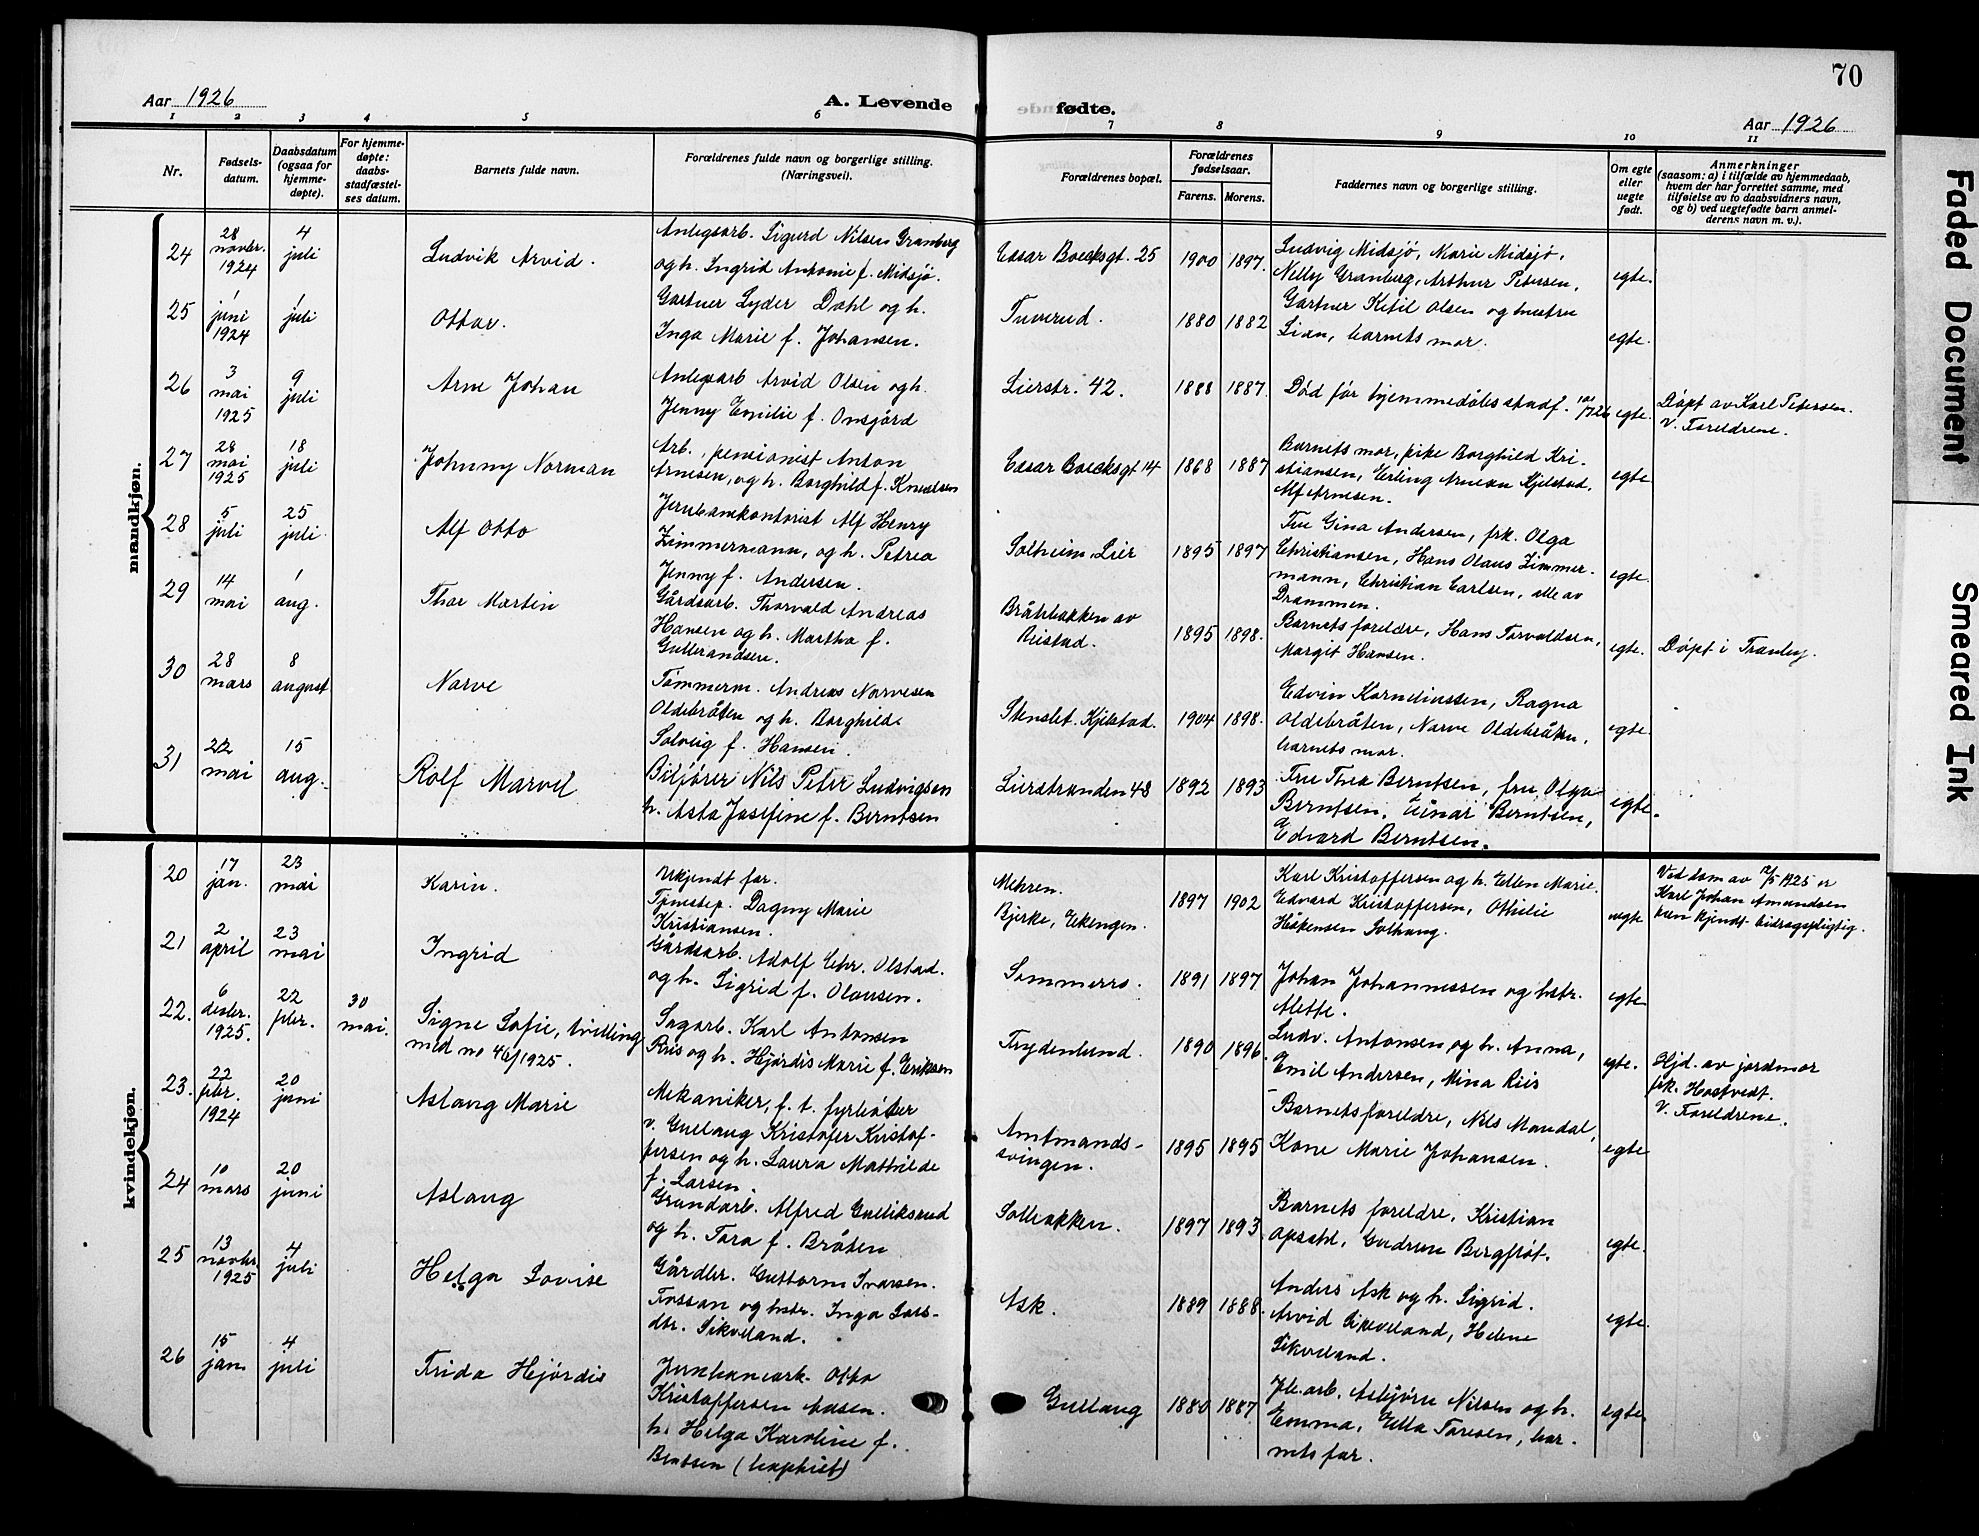 70
Aar 1926
A. Levende
fødte.
Aar 1926
1 2 3 4 5 6 7 8 9 10 11
Nr.
Fødsels-
datum.
Daabsdatum
(ogsaa for
hjemme-
døpte).
For hjemme-
døpte:
daabs-
stadfæstel-
ses datum.
Barnets fulde navn.
Forældrenes fulde navn og borgerlige stilling.
(Næringsvei).
Forældrenes bopæl.
Forældrenes
fødselsaar.
Farens. Morens.
Faddernes navn og borgerlige stilling.
Om egte
eller
uegte
født.
Anmerkninger
(saasom: a) i tilfælde av hjemmedaab,
hvem der har forrettet samme, med
tilføielse av to daabsvidners navn,
og b) ved uegtefødte barn anmel-
derens navn m. v.).
mandkjøn.
24
28
novbr.
1924
4
juli
Ludvik Arvid.
Anlegsarb. Sigurd Nilsen Granberg
og h. Ingrid Antonie f. Midsjø.
Cesar Boecksgt. 25
1900 1897.
Ludvig Midsjø, Marie Midsjø,
Nelly Granberg, Arthur Petersen.
egte.
25
1
juni
1924
1
juli
Ottar.
Gartner Lyder Dahl og h.
Inga Marie f. Johansen.
Tuverud.
1880 1882
Gartner Ketil Olsen og hustru
Lian, barnets mor.
egte.
26
3
mai
1925
9
juli
Arne Johan
Anlegsarb Arvid Olsen og h.
Jenny Emilie f. Onsjørd
Lierstr. 42.
1888 1887.
Død før hjemmedåbs stadf.
egte.
Døpt av Karl Petersen.
V. Foreldrene.
27
28
mai
1925
18
juli
Johnny Norman
Arb., pensionist Anton
Arnesen, og h. Borghild f. Knudsen
Cesar Boecksgt 14
1868 1887
Barnets mor, pike Borghild Kri-
stiansen, Erling Arnesen Kjelstad,
Alf Arnesen.
egte
28
5
juli
25
juli.
Alf Otto
Jernbanekontorist Alf Henry
Zimmermann, og h. Petrea
Jenny f. Andersen.
Solheim, Lier
1895 1897
Frue Gina Andersen, frk. Olga
Christiansen, Hans Olaus Zimmer-
mann, Christian Carlsen, alle av
Drammen.
egte.
29
14
mai
1
aug.
Thor Martin
Gårdsarb. Thorvald Andreas
Hansen og h. Martha f.
Gulbrandsen.
Bråtebakken av
Reistad.
1895 1898.
Barnets foreldre, Hans Torvaldsen,
Margit Hansen.
egte.
Døpt i Tranby.
30
28
mars
8
august
Narve
Tømmerm. Andreas Narvesen
Oldebråten og h. Borghild
Solveig f. Hansen.
Stenslet. Kjelstad.
1904 1898.
Edvin Korneliussen, Ragna
Oldebråten, Narve Oldebråten,
barnets mor.
egte.
31
22
mai
15
aug.
Rolf Marvel
Biljører Nils Peter Ludvigsen
h. Asta Josefine f. Berntsen
Lierstranden 48
1892 1893
Frue Thea Berntsen, fru Olga
Berntsen, Einar Berntsen,
Edvard Berntsen.
egte.
kvindekjøn.
20
17
jan.
23
mai
Karin.
Ukjendt far.
Tjenestep. Dagny Marie
Kristiansen.
Mehren.
Bjerke, Ekengen.
1897 1902
Karl Kristoffersen og h. Ellen Marie.
Edvard Kristoffersen, Othilie
Håkensen Solhaug.
uegte
Ved dom av 7/5 1925 er
Karl Johan Amundsen
kun kjendt bidragspligtig.
21
2
april
23
mai
Ingrid
Gårdsarb. Adolf Chr. Olstad.
og h. Sigrid f. Olausen.
Sommerro.
1891 1897
Johan Johannessen og hstr.
Alette.
egte
22.
6
desbr.
1925.
22
febr.
30
mai.
Signe Sofie, tvilling
med no 46/1925.
Sagarb. Karl Antonsen
Riis og h. Hjørdis Marie f. Eriksen
Frydenlund.
1890 1896
Ludv. Antonsen og h. Anna,
Emil Andersen, Mina Riis
egte.
Hjd. av jordmor
frk. Hostvedt.
V. Foreldrene.
23.
22
febr.
1924
20
juni
Aslaug Marie
Mekaniker, f. t. fyrbøter
v. Gullaug Kristofer Kristof-
fersen og h. Laura Mathilde
f. Larsen.
Amtmands-
svingen.
1895 1895
Barnets foreldre, Nils Mandal,
Kone Marie Johansen.
egte
24
10
mars
20
juni
Aslaug
Grundarb. Alfred Gulliksrud
og h. Tora f. Bråten
Solbakken.
1897 1893
Barnets foreldre, Kristian
Opsahl, Gudrun Bergfløt.
egte.
25
13
novbr.
1925
4
juli
Helga Lovise
Gårdbr. Guttorm Ivarsen.
Fossan og hstr. Inga Lars-
dtr. Sikveland.
Ask.
1889 1888.
Anders Ask og h. Sigrid.
Arvid Sikveland, Helene
Sikveland.
egte.
26
15
jan.
4
juli
Frida Hejørdis
Jernbanearb. Otto
Kristoffersen Aasen.
h. Helga Karoline f.
Bentsen (baptist)
Gullaug
1880 1887
Jb. arb. Asbjørn Nilsen og h.
Emma, Ella Toresen, bar-
nets far.
egte
Faded Document
Smeared Ink